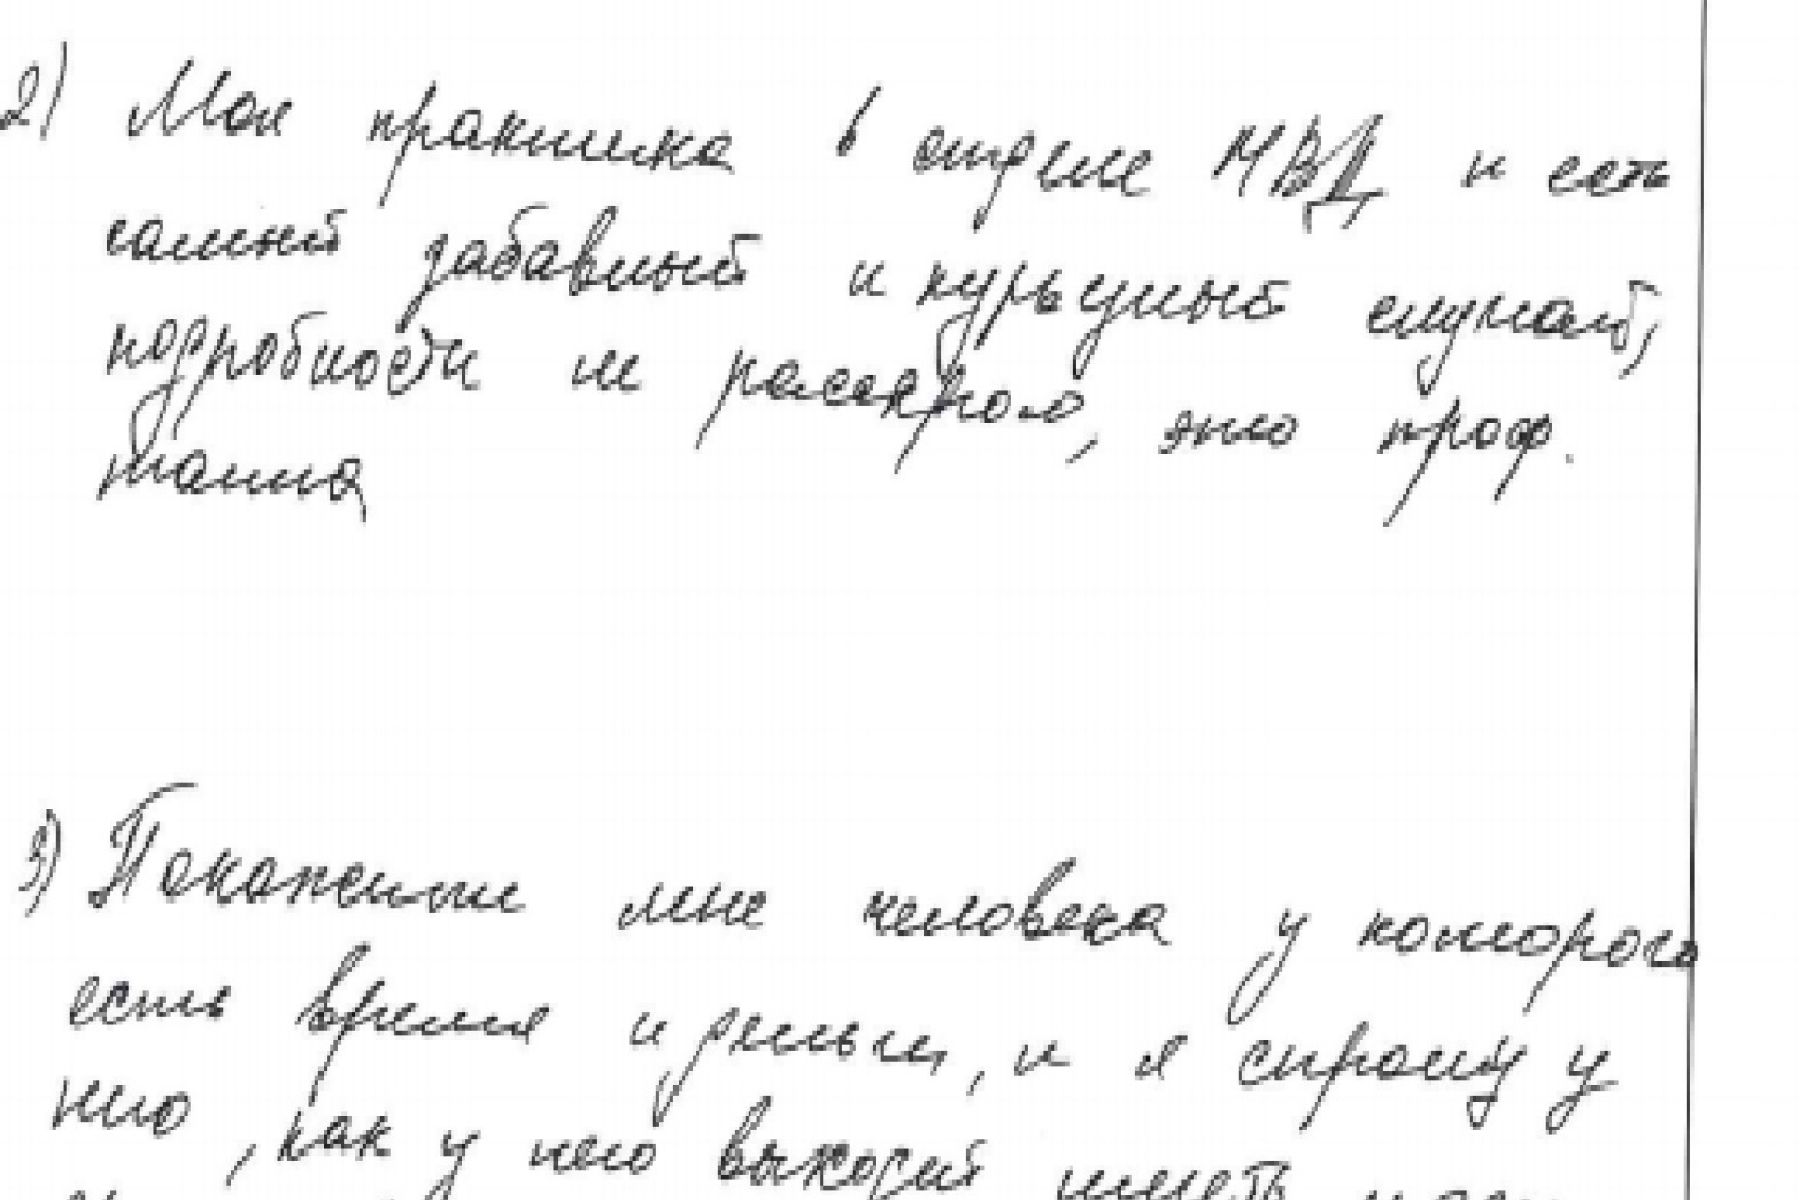 2) Моя практика в отделе МВД и есть
самый забавный и курьезный случай,
подробности не раскрою, это проф.
тайна
3) Покажите мне человека у которого
есть время и деньги, и я спрошу у
него, как у него выходит иметь